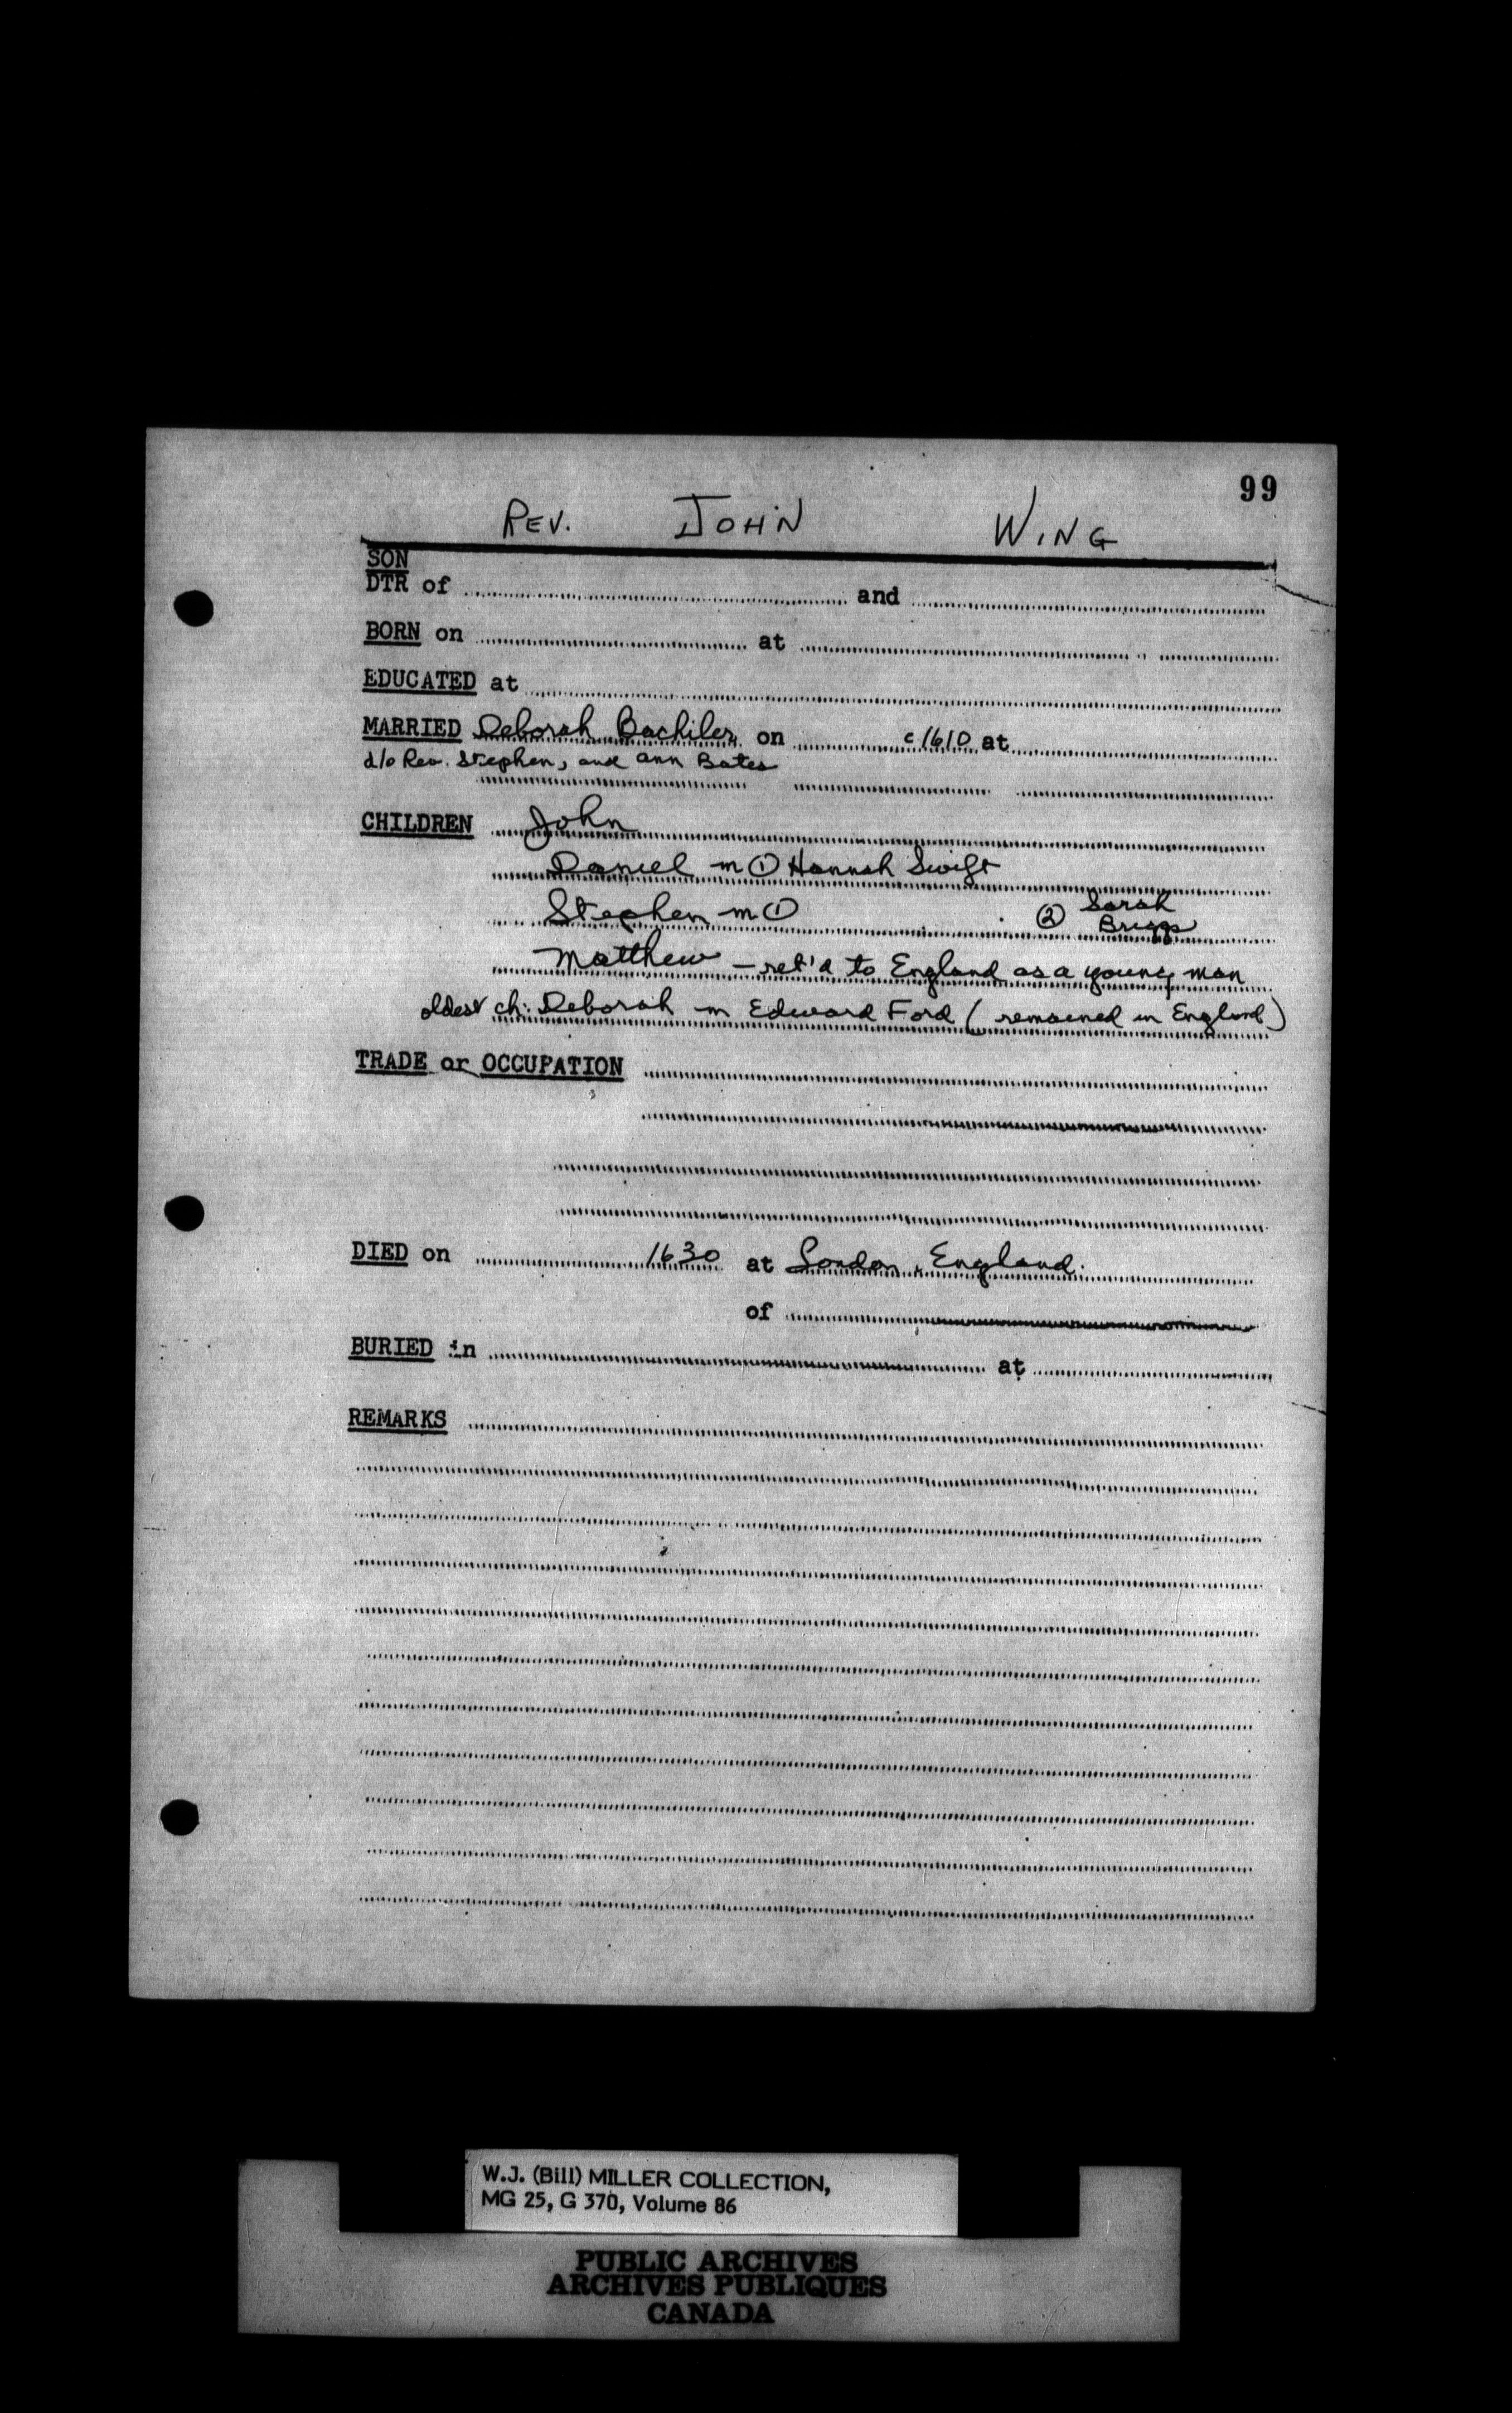 99
REV. JOHN WING
SON
DTR of and
BORN on at
EDUCATED at
MARRIED Deborah Bachiler on c 1610 at
d/o Rev. Stephen, and Ann Bates
CHILDREN John
Daniel m ① Hannah Swift
Stephen m ① ② Sarah Briggs
Matthew - ret'd to England as a young man
oldest ch: Deborah m Edward Ford (remained in England)
TRADE or OCCUPATION
DIED on 1630 at London, England.
of
BURIED in at
REMARKS
W.J. (Bill) MILLER COLLECTION,
MG 25, G 370, Volume 86
PUBLIC ARCHIVES
ARCHIVES PUBLIQUES
CANADA